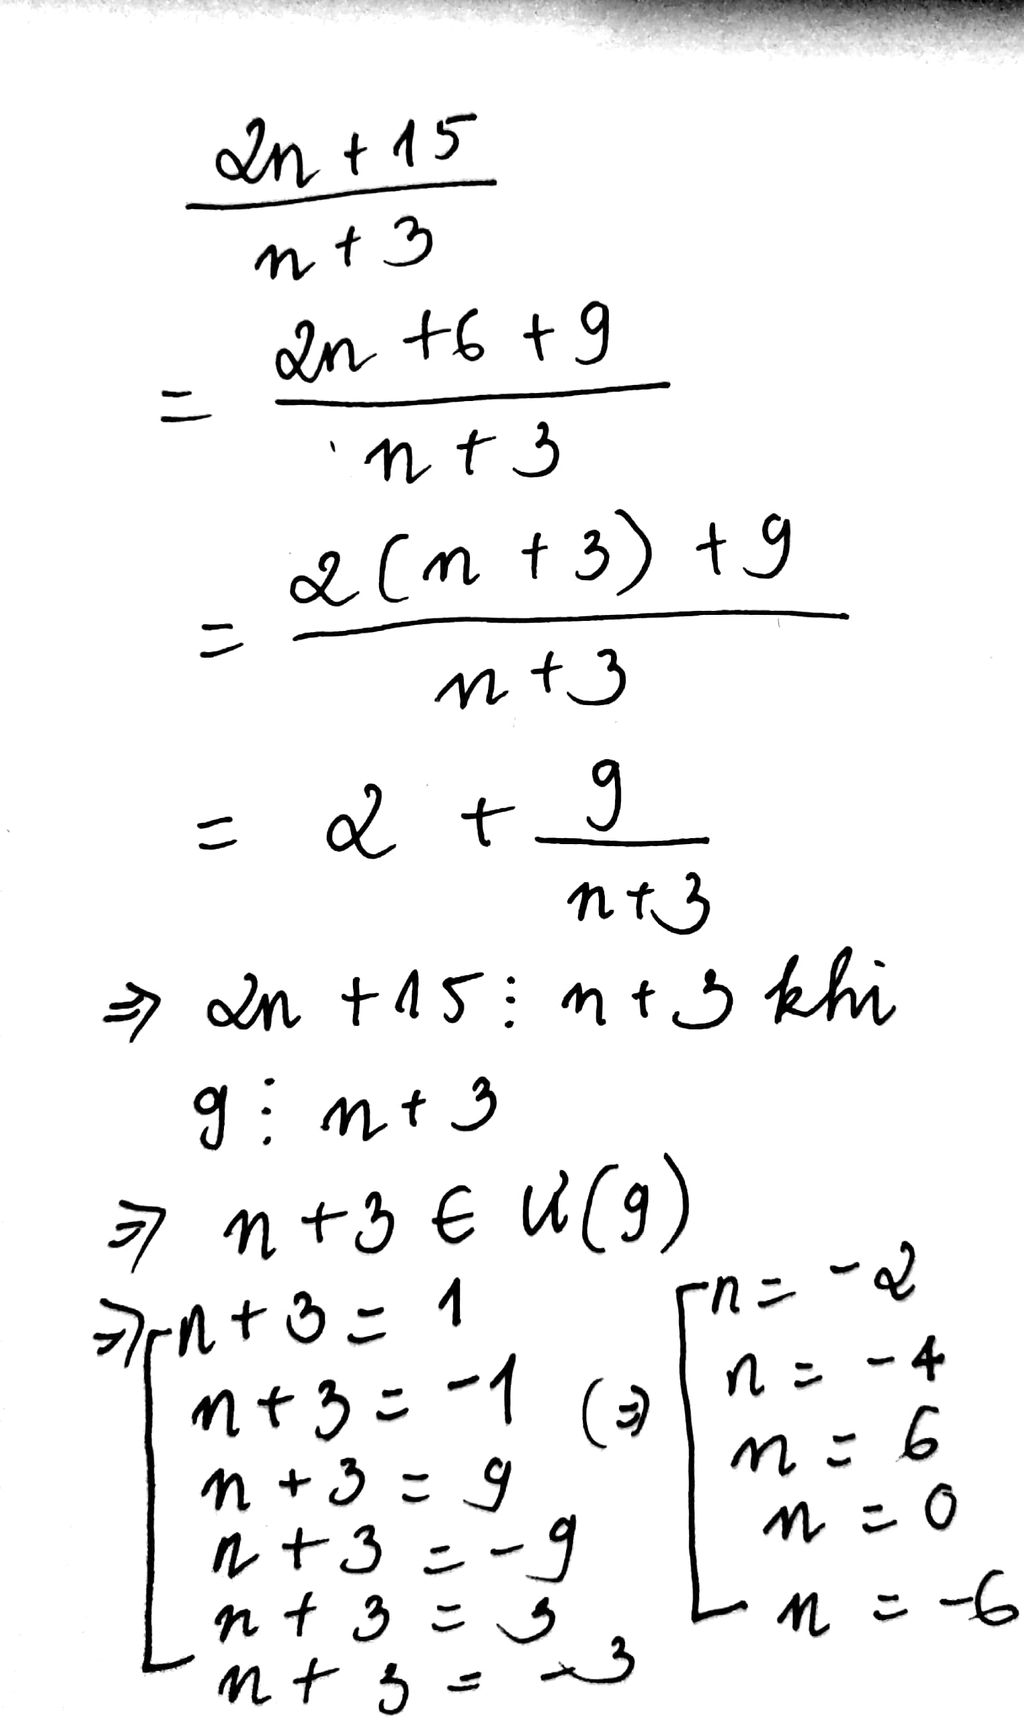 2n + 15
n + 3
= 2n + 6 + 9
n + 3
= 2(n + 3) + 9
n + 3
= 2 + 9
n + 3
⇒ 2n + 15 ⋮ n + 3 khi
9 ⋮ n + 3
⇒ n + 3 ∈ Ư(9)
⇒ [ n + 3 = 1
n + 3 = -1
n + 3 = 9
n + 3 = -9
n + 3 = 3
n + 3 = -3
(⇒) [ n = -2
n = -4
n = 6
n = 0
n = -6